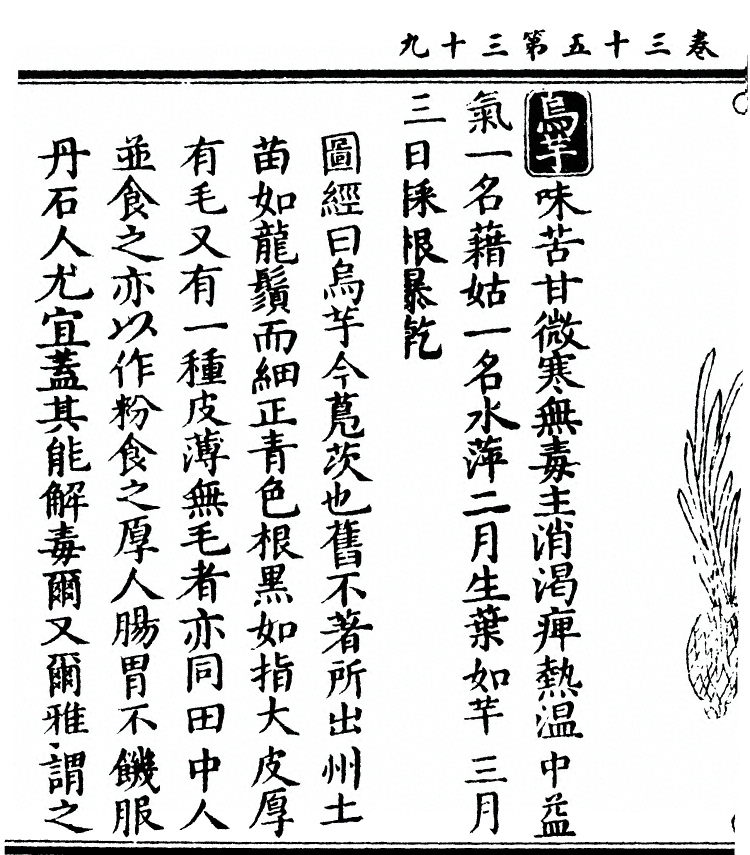 卷三十五第三十九
烏芋味苦甘微寒無毒主消渴痺熱溫中益
氣一名藉姑一名水萍二月生葉如芋三月
三日採根暴乾
圖經曰烏芋今鳧茨也舊不著所出州土
苗如龍鬚而細正青色根黑如指大皮厚
有毛又有一種皮薄無毛者亦同田中人
並食之亦以作粉食之厚人腸胃不饑服
丹石人尤宜蓋其能解毒爾又爾雅謂之